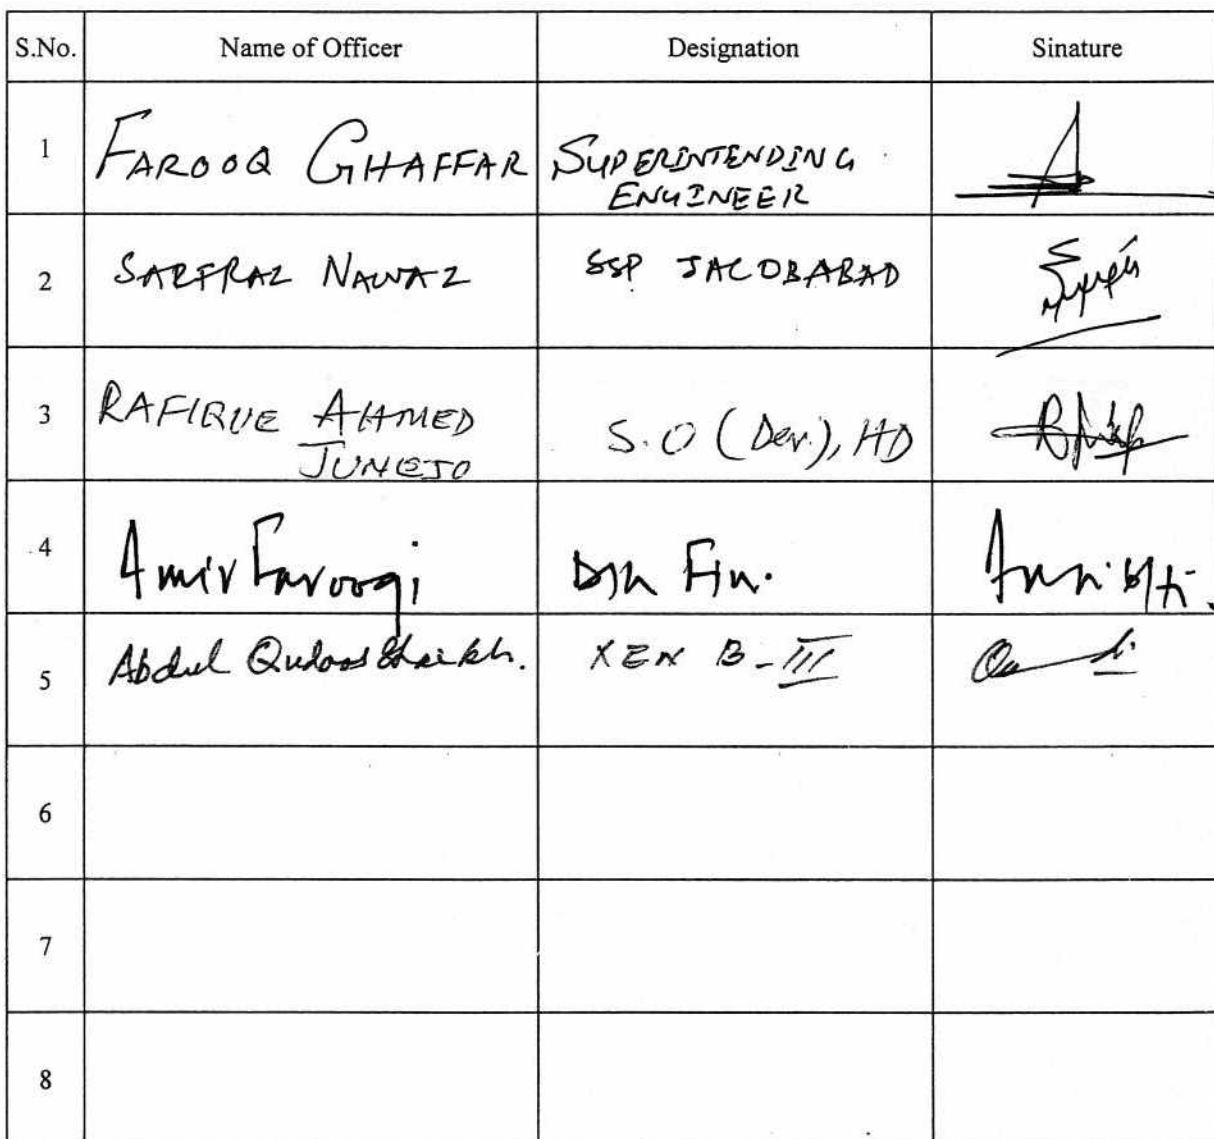 S.No. Name of Officer Designation Sinature
1 FAROOQ GHAFFAR SUPERINTENDING
ENGINEER
2 SARFRAZ NAWAZ SSP JACOBABAD
3 RAFIQUE AHMED
JUNEJO S.O (Dev.), HD
4 Amir Farooqi Fin.
5 Abdul Qudoos Shaikh. XEN B-III
6
7
8